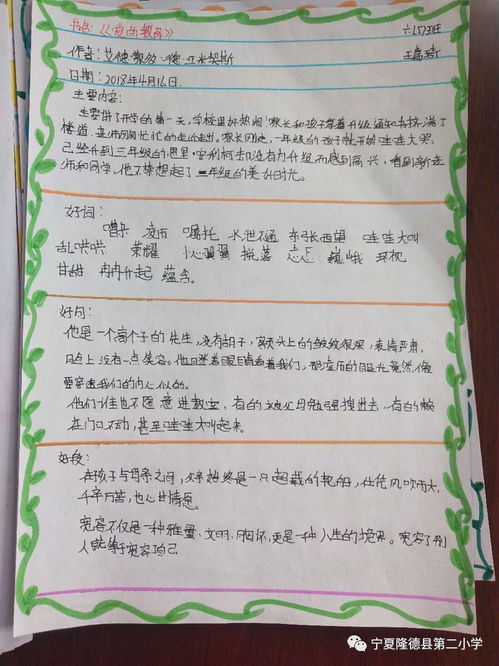 书名:《爱的教育》 六(7)班
作者:艾德蒙多·德·亚米契斯 王嘉琦
日期:2018年4月16日.
主要内容:
主要讲了开学的第一天,学校里好热闹!家长和孩子拿着升级通知书挤满了
楼道,老师们匆匆忙忙的走进走出。家长刚走,一年级的孩子就开始哇哇大哭,
已经升到三年级的恩里 安利柯却没有为升级而感到高兴,看到新老
师和同学,他不禁想起了二年级的美好时光。
好词:
嘈杂 凌历 嘱托 水泄不通 东张西望 哇哇大叫
乱哄哄 荣耀 小心翼翼 巍峨 环视
甘甜 冉冉升起 蕴含。
好句:
他是一个高个子的先生,没有胡子,额头上的皱纹很深,表情严肃,
脸上没有一点笑容。他瞪着眼睛看着我们,那凌历的目光竟然像
要穿透我们的内心似的。
他们谁也不愿意进教室,有的被父母勉强拽进去,有的赖
在门口不动,甚至哇哇大叫起来。
好段:
在孩子与母亲之间,母亲始终是一只超载的轮船,任凭风吹雨大,
千辛万苦,也心甘情愿。
宽容不仅是一种雅量、文明、胸怀,更是一种人生的境界。宽容了别
人就等于宽容自己
宁夏隆德县第二小学